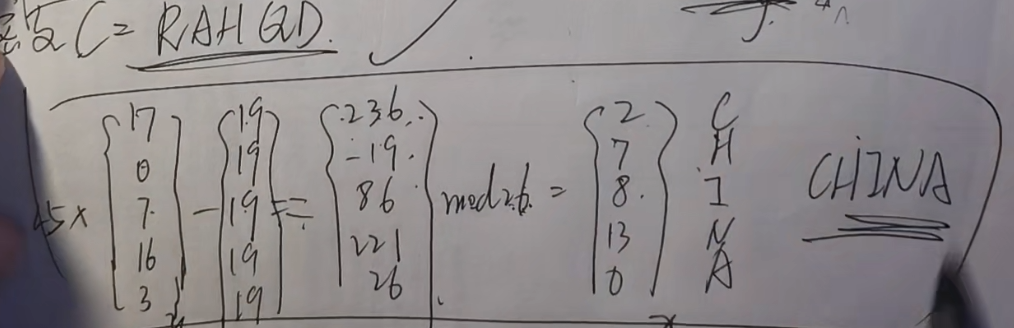 C = RAHQD.
15 × [17 0 7 16 3] - [19 19 19 19 19] = [236 -19 86 221 26] mod 26 = [2 7 8 13 0] C H I N A CHINA